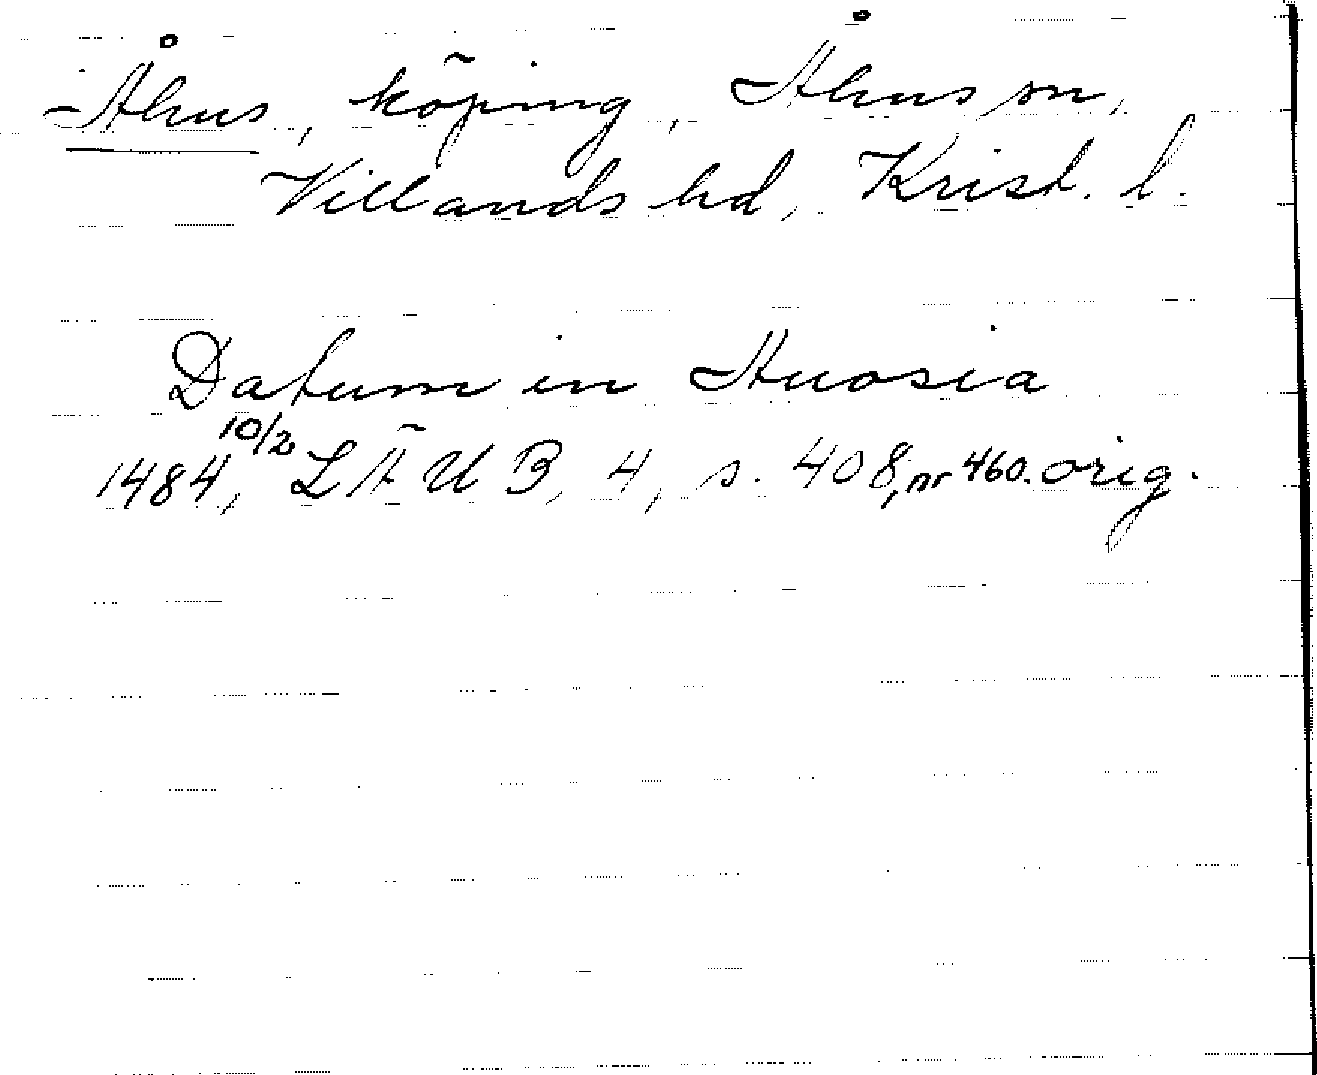 Åhus, köping, Åhus sn,
Villands hd, Krist. l.
Datum in Auosia
1484 10/2, LÄUB, 4, s. 408, nr 460. orig.